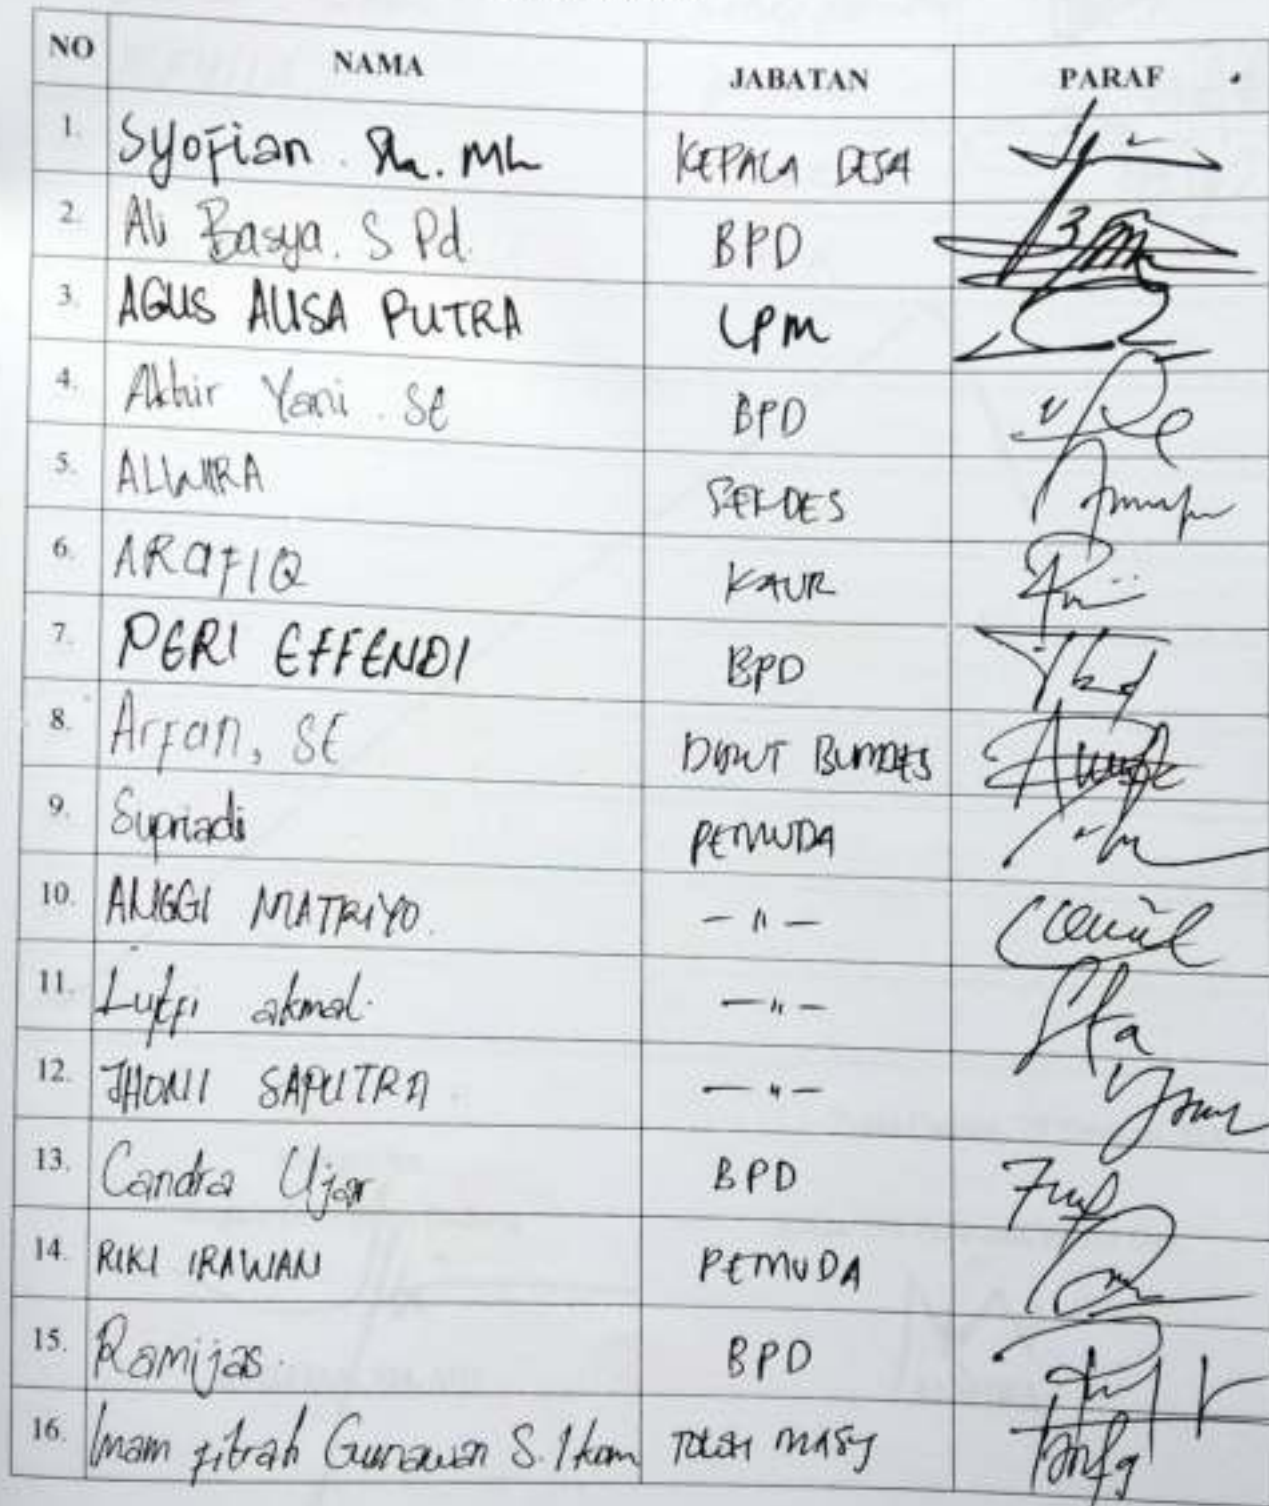 NO NAMA JABATAN PARAF
1. Syofian. Sh. Mh KEPALA DESA
2. Ali Basya. S Pd. BPD
3. AGUS ALISA PUTRA LPM
4. Akhir Yani. SE BPD
5. ALWIRA SEKDES
6. ARAFIQ KAUR
7. PERI EFFENDI BPD
8. Arfan, SE DIRUT BUMDES
9. Supriadi PEMUDA
10. ANGGI MATRIYO. — " —
11. Lutfi akmal. — " —
12. JHONI SAPUTRA — " —
13. Candra Ujar BPD
14. RIKI IRAWAN PEMUDA
15. Ramijas. BPD
16. Imam fitrah Gunawan S. Ikom TOKOH MASY